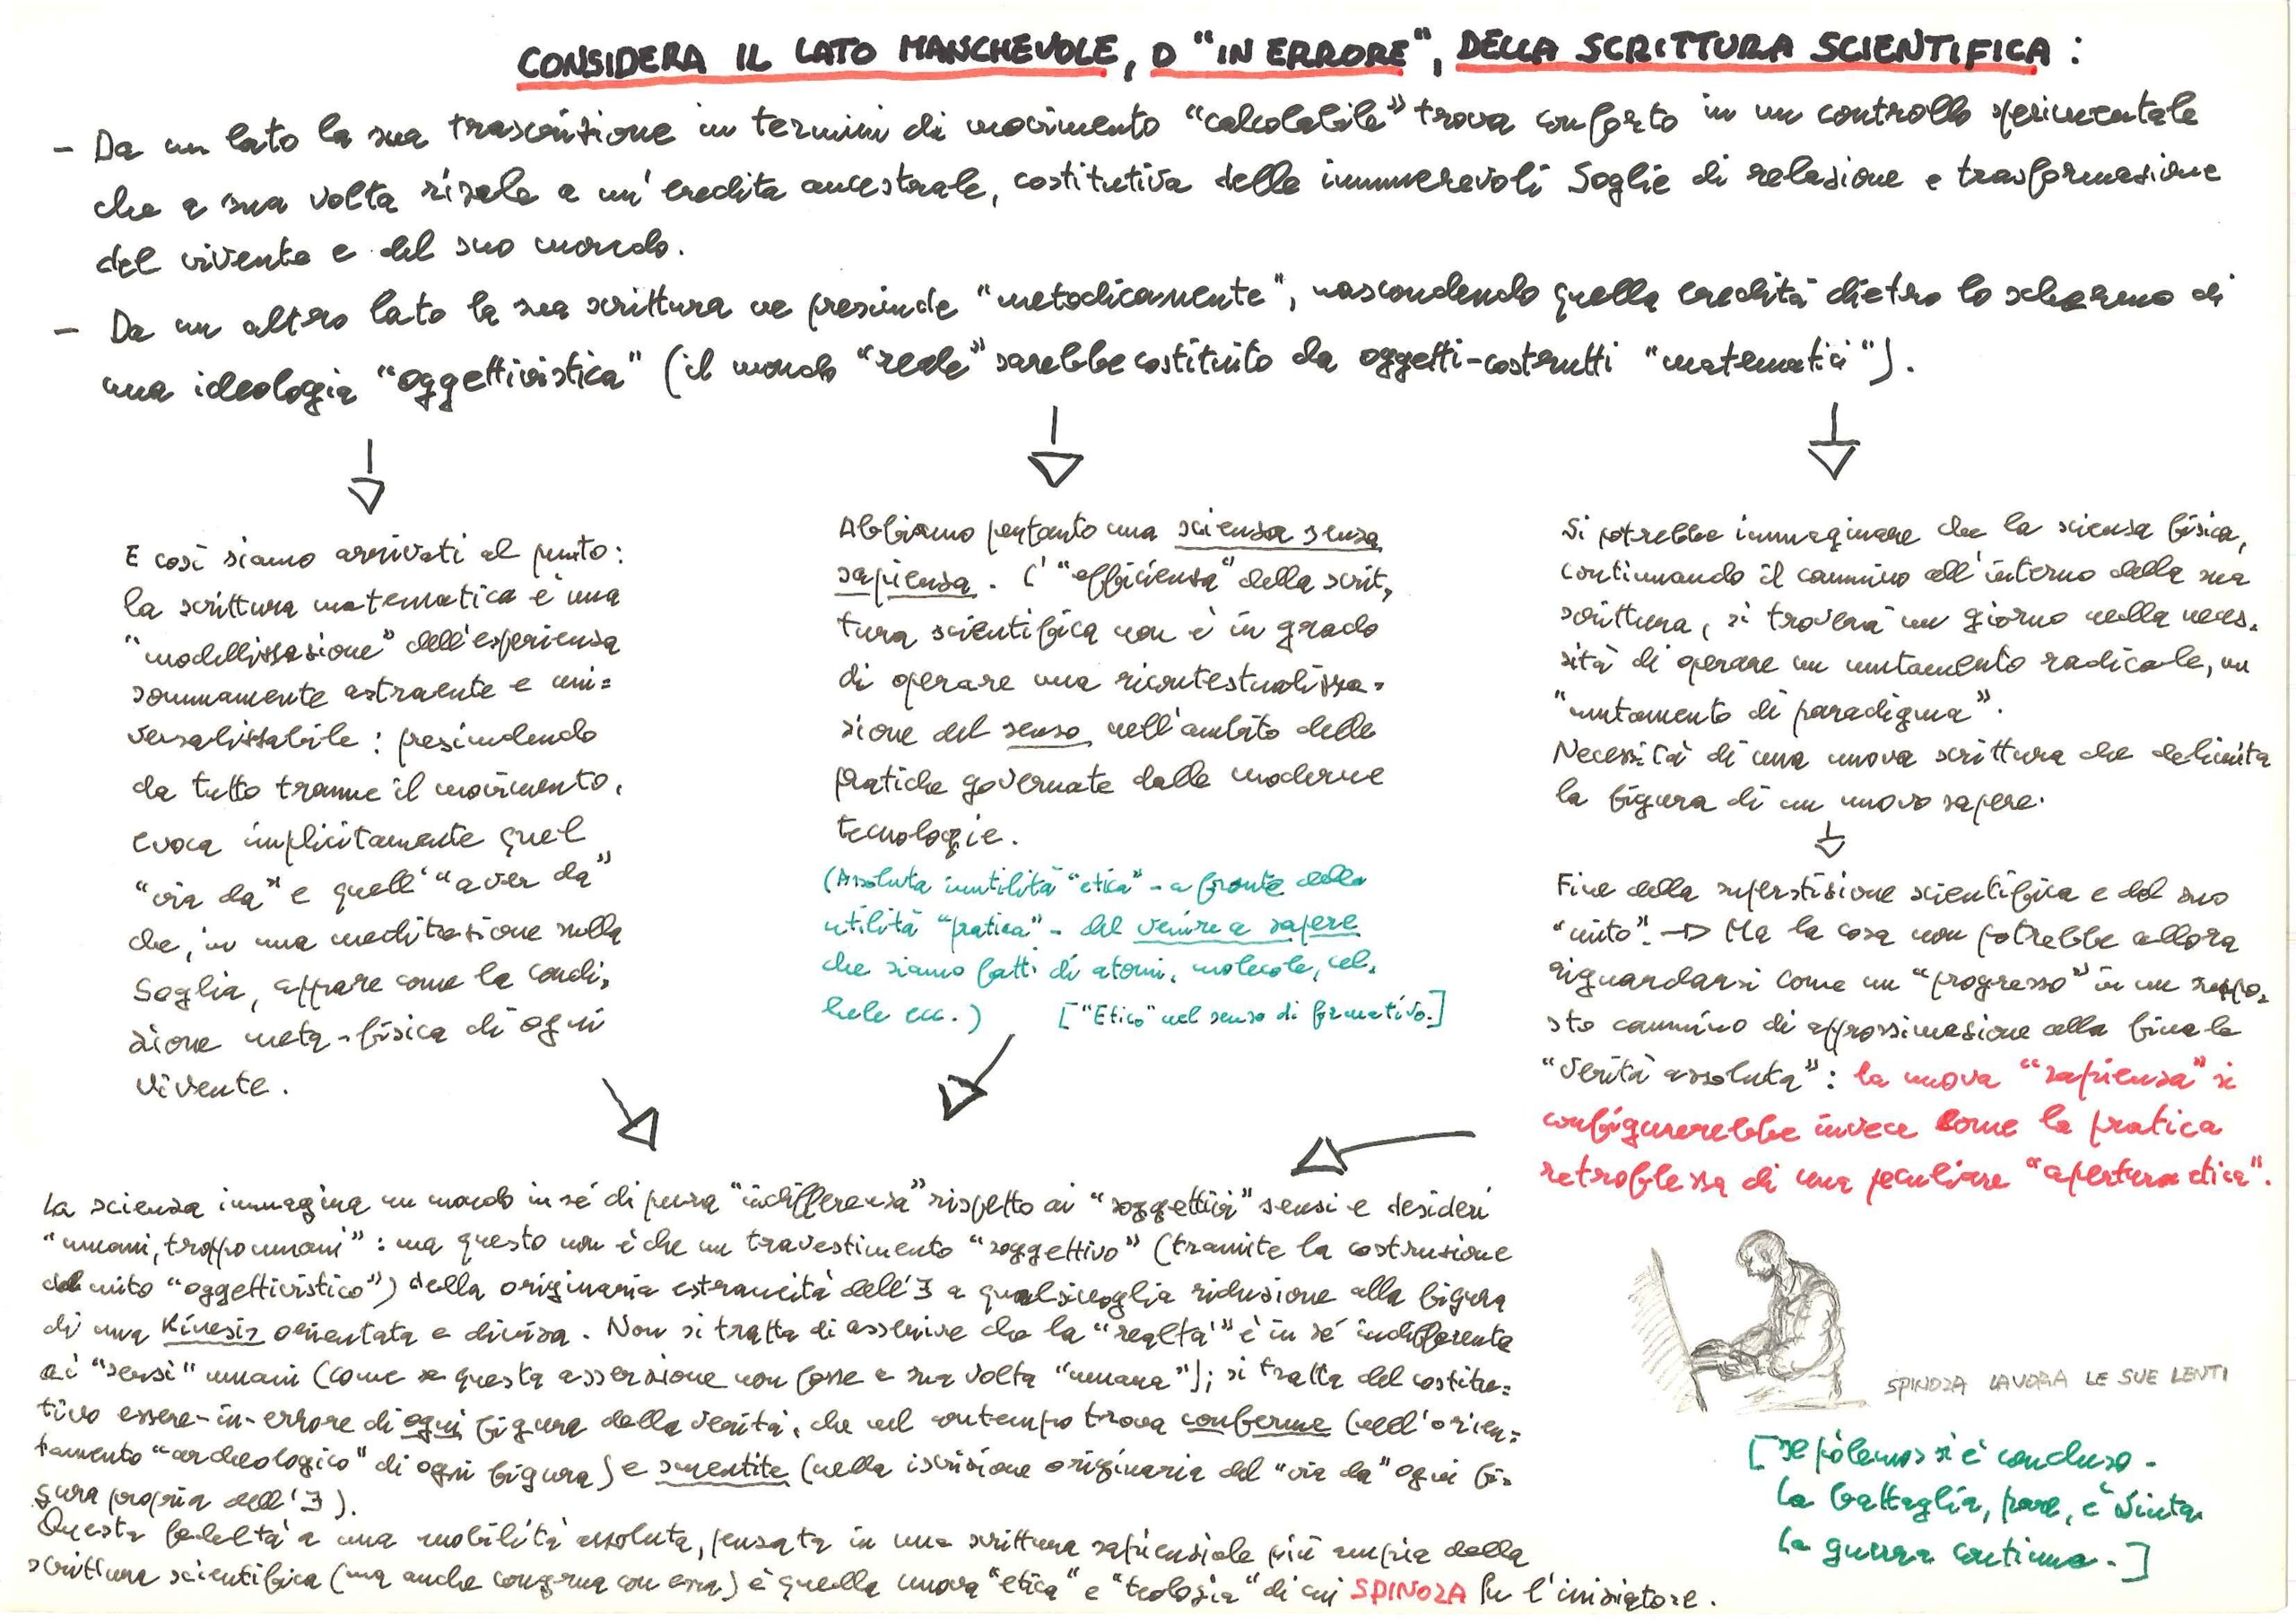 CONSIDERA IL LATO MANCHEVOLE, O "IN ERRORE", DELLA SCRITTURA SCIENTIFICA :
- Da un lato la sua trascrizione in termini di movimento "calcolabile" trova conforto in un controllo sperimentale
che a sua volta risale a un'eredità ancestrale, costitutiva delle innumerevoli Soglie di relazione e trasformazione
del vivente e del suo mondo.
- Da un altro lato la sua scrittura ne prescinde "metodicamente", nascondendo quella eredità dietro lo schermo di
una ideologia "oggettivistica" (il mondo "reale" sarebbe costituito da oggetti-costrutti "matematici").
E così siamo arrivati al punto:
la scrittura matematica è una
"modellizzazione" dell'esperienza
sommamente astraente e uni=
versalizzabile : prescindendo
da tutto tranne il movimento,
evoca implicitamente quel
"via da" e quell' "aver da"
che, in una meditazione sulla
Soglia, appare come la condi,
zione meta-fisica di ogni
vivente.
Abbiamo pertanto una scienza senza
sapienza. L' "efficienza" della scrit,
tura scientifica non è in grado
di operare una ricontestualizza=
zione del senso nell'ambito delle
pratiche governate dalle moderne
tecnologie.
(Assoluta inutilità "etica" - a fronte della
utilità "pratica" - del venire a sapere
che siamo fatti di atomi, molecole, cel,
lule ecc.) ["Etico" nel senso di formativo.]
Si potrebbe immaginare che la scienza fisica,
continuando il cammino all'interno della sua
scrittura, si troverà un giorno nella neces,
sità di operare un mutamento radicale, un
"mutamento di paradigma".
Necessità di una nuova scrittura che delimita
la figura di un nuovo sapere.
Fine della superstizione scientifica e del suo
"mito". → Ma la cosa non potrebbe allora
riguardarsi come un "progresso" in un suppo,
sto cammino di approssimazione alla finale
"Verità assoluta" : la nuova "sapienza" si
configurerebbe invece come la pratica
retroflessa di una peculiare "apertura etica".
La scienza immagina un mondo in sé di pura "indifferenza" rispetto ai "soggettivi" sensi e desideri
"umani, troppo umani" : ma questo non è che un travestimento "soggettivo" (tramite la costruzione
del mito "oggettivistico") della originaria estraneità dell'∃ a qualsivoglia riduzione alla figura
di una Kinesis orientata e divisa. Non si tratta di asserire che la "realtà" è in sé indifferente
ai "sensi" umani (come se questa asserzione non fosse a sua volta "umana"); si tratta del costitu=
tivo essere-in-errore di ogni figura della verità, che nel contempo trova conferme (nell'orien=
tamento "archeologico" di ogni figura) e smentite (nella iscrizione originaria del "via da" ogni fi=
gura propria dell'∃).
Questa fedeltà a una mobilità assoluta, pensata in una scrittura sapienziale più ampia della
scrittura scientifica (ma anche congrua con essa) è quella nuova "etica" e "teologia" di cui SPINOZA fu l'iniziatore.
SPINOZA LAVORA LE SUE LENTI
[Il pòlemos si è concluso -
La battaglia, pare, è vinta.
La guerra continua.]